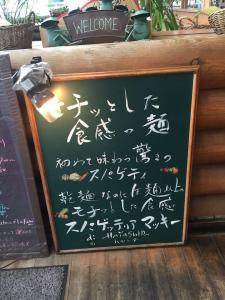 WELCOME
モチッとした
食感の麺
初めて味わう驚きの
スパゲティ
乾麺なのに生麺以上
モチッとした食感
スパゲッテリア マッキー